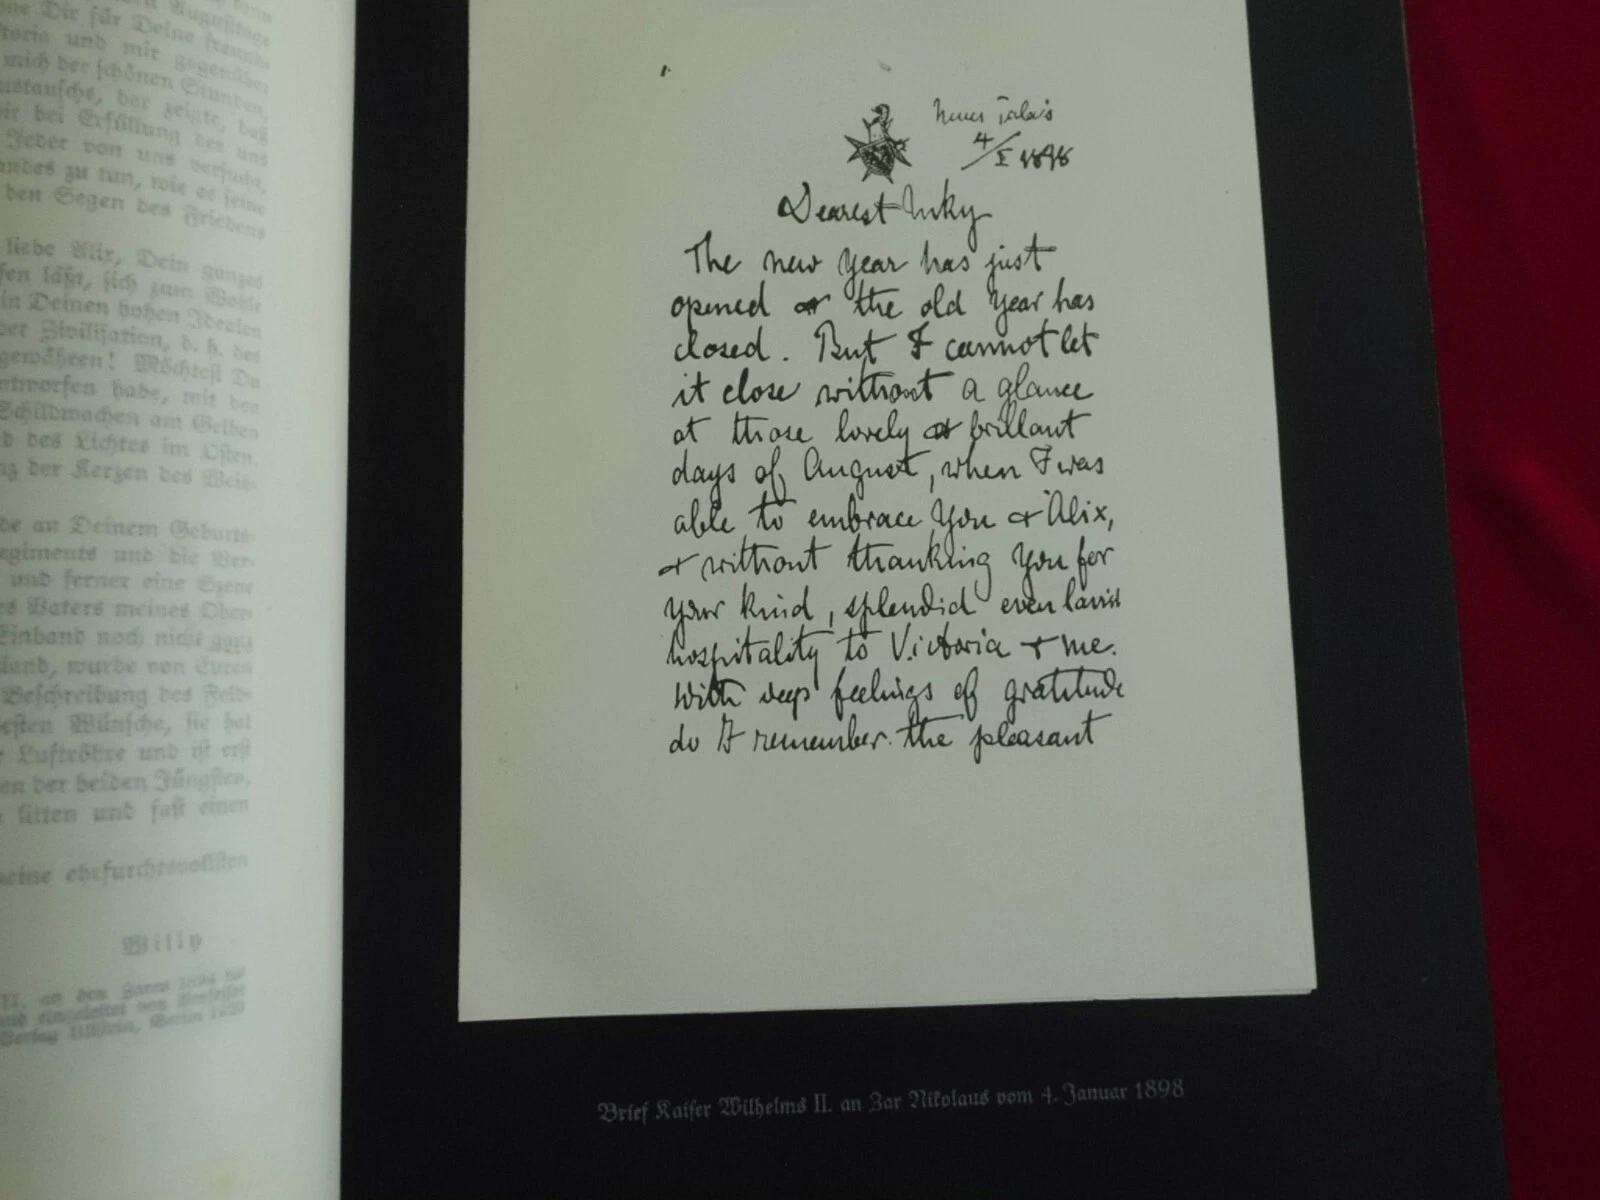 ne Dir für Deine freund-
und mir gegenüber
mich der schönen Stunden,
der zeigte, daß
bei Erfüllung der uns
Jeder von uns versucht,
zu tun, wie es seine
den Segen des Friedens
liebe Alix, Dein ganzes
läßt, sich zum Wohle
in Deinen hohen Idealen
der Zivilisation, d. h. des
gewähren! Möchtest Du
entworfen habe, mit den
Schildwachen am Gelben
des Lichtes im Osten,
der Kerzen des Weih-
an Deinem Geburts-
Regiments und die Ver-
und ferner eine Szene
Vaters meines Ober-
Einband noch nicht ganz
wurde von Eurem
Beschreibung des Feld-
besten Wünsche, sie hat
Luftröhre und ist erst
der beiden Jüngsten,
litten und fast einen
meine ehrfurchtsvollsten
Willy
II. an den Zaren 1894
und eingeleitet von
Verlag Ullstein, Berlin
Neues Palais
4/I 1898
Dearest Nicky
The new year has just
opened & the old year has
closed. But I cannot let
it close without a glance
at those lovely & brillant
days of August, when I was
able to embrace You & Alix,
& without thanking You for
your kind, splendid even lavish
hospitality to Victoria & me.
With deep feelings of gratitude
do I remember the pleasant
Brief Kaiser Wilhelms II. an Zar Nikolaus vom 4. Januar 1898